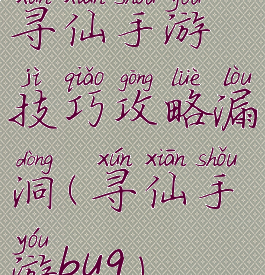 xún xiān shǒu yóu
寻仙手游
jì qiǎo gōng lüè lòu
技巧攻略漏
dòng xún xiān shǒu
洞(寻仙手
yóu
游bug)